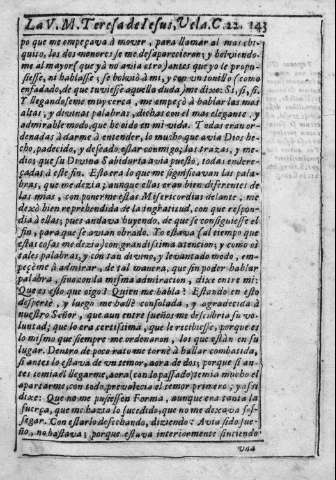 La V. M. Teresa de Iesus, Vela. C. 22. 143
po que me empeçava à mover, para llamar al mas chi-
quito, los dos menores se me desaparecieron; y bolviendo-
me al mayor (que yà no avia otro) antes que yo le propu-
siesse, ni hablasse, se bolviò à mi, y con un tonillo (como
enfadado, de que tuviesse aquello duda) me dixo: Si, si, si.
Y llegandoseme muy cerca, me empeçò à hablar las mas
altas, y divinas palabras, dichas con el mas elegante, y
admirable modo, que he oido en mi vida. Todas eran or-
denadas à darme à entender, lo mucho que avia Dios he-
cho, padecido, y deseado estar conmigo; las trazas, y me-
dios que su Divina Sabiduria avia puesto, todas endere-
çadas à este fin. Esto era lo que me significavan las pala-
bras, que me dezia; aunque ellas eran bien diferentes de
las mias, con ponerme estas Misericordias delante, me
dexò bien reprehendida de la ingratitud, con que respon-
dia à ellas; pues andava huyendo, de que se consiguiesse el
fin, para que se avian obrado. Yo estava (al tiempo que
estas cosas me dezia) con grandissima atencion; y como oì
tales palabras, y con tan divino, y levantado modo, em-
pecème à admirar, de tal manera, que sin poder hablar
palabra, sino con la misma admiracion, dixe entre mi:
Que es esto que oigo? Quien me habla? Estando en esto
despertè, y luego me hallè consolada, y agradecida à
nuestro Señor, que aun entre sueños me descibria su vo-
luntad; que lo era certissima, que le recibiesse, porque es
lo mismo que siempre me ordenaron, los que estàn en su
lugar. Dentro de poco rato me tornè à hallar combatida,
si antes lo estava de un temor, aora de dos; porque si an-
tes temia el llegarme, aora (con lo passado) temia mucho el
apartarme, con todo, prevalecia el temor primero; y assi
dixe: Que no me pusiessen Forma, aunque era tanta la
fuerça, que me hazia lo sucedido, que no me dexava sos-
segar. Con estarlo desechando, diziendo: Avia sido sue-
ño, no bastava; porque estava interiormente sintiendo
una